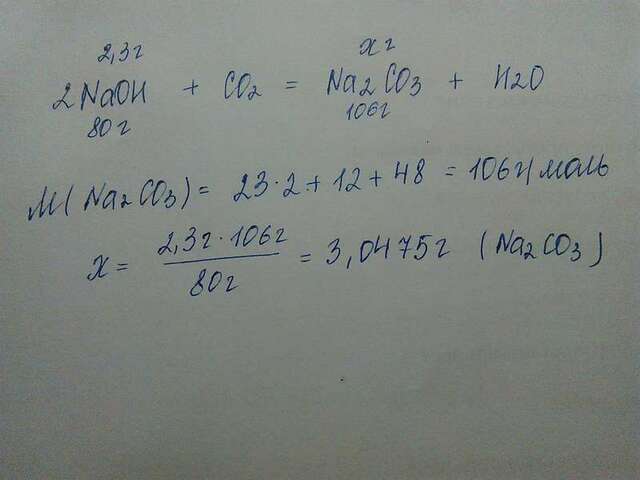 2,3г хг
2NaOH + CO₂ = Na₂CO₃ + H2O
80г 106г
M(Na₂CO₃) = 23·2+12+48 = 106г/моль
x = 2,3г·106г / 80г = 3,0475г (Na₂CO₃)